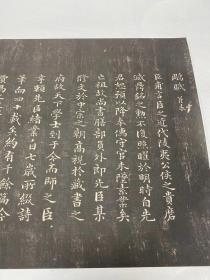 鵰賦
臣甫言臣之近代陵夷公侯之貴磨
滅鼎銘之勳不復照曜於明時自先
君恕預以降奉儒守官未墜素業矣
亡祖故尚書膳部員外郎先臣某
修文於中宗之朝高視於藏書之
府故天下學士到于今而師之臣
幸賴先臣緒業自七歲所綴詩
筆向四十載矣約有千餘篇今
賈馬